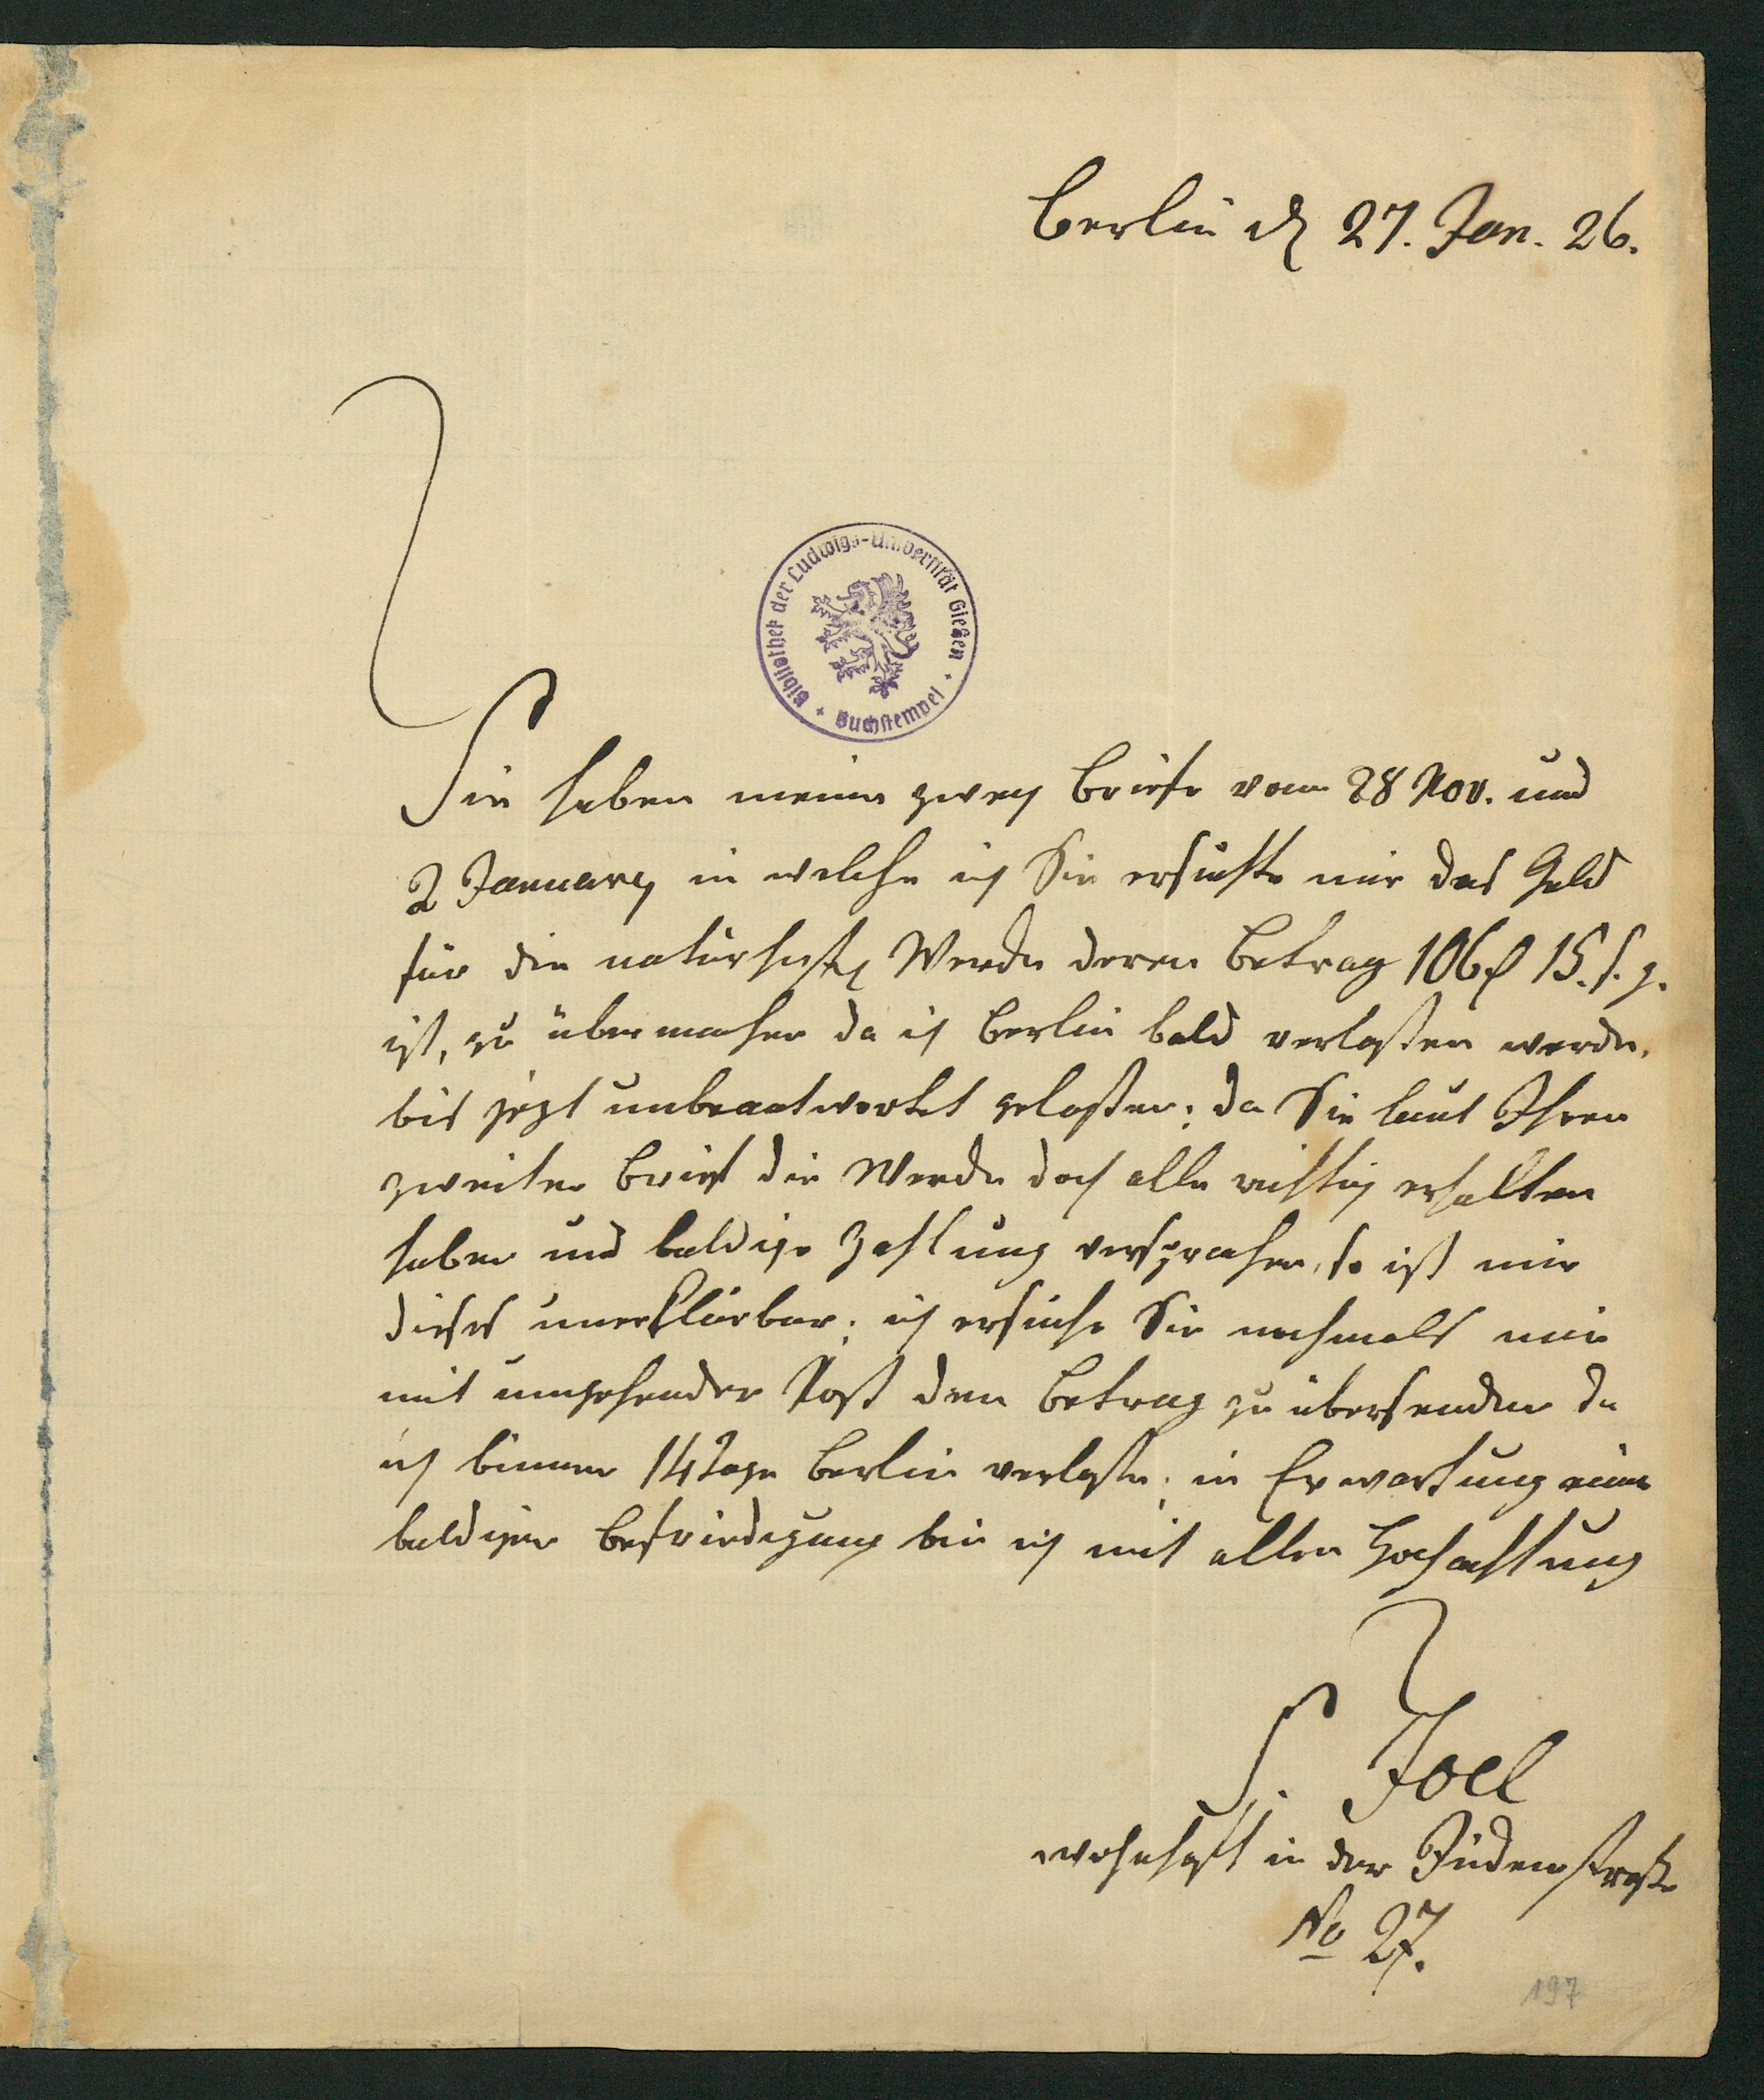 Berlin d 27. Jan. 26.
Bibliothek der Ludwigs-Universität Gießen + Buchstempel +
Sie haben meine zwey Briefe vom 28 Nov. und
2 January in welche ich Sie ersuchte mir das Geld
für die naturhist Werke deren Betrag 106 15. s. g.
ist, zu übermachen da ich Berlin bald verlaßen werde,
bis jezt unbeantwortet gelaßen; da Sie laut Ihren
zweiten Brief die Werke doch alle richtig erhalten
haben und baldige Zahlung versprachen, so ist mir
dieses unerklärbar; ich ersuche Sie nochmals mir
mit umgehender Post den Betrag zu übersenden da
ich binnen 14 Tage Berlin verlaße; in Erwartung einer
baldigen Befriedigung bin ich mit allen Hochachtung
S. Joel
wohnhaft in der Jüdenstraße
No 27.
197